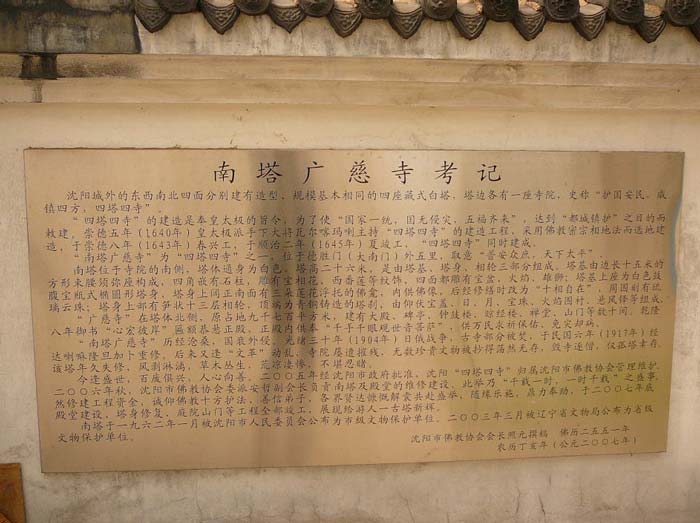 南塔广慈寺考记
沈阳城外的东西南北四面分别建有造型，规模基本相同的四座藏式白塔，塔边各有一座寺院，史称“护国安民，威
镇四方，四塔四寺”。
“四塔四寺”的建造是奉皇太极的旨令，为了使“国家一统，国无侵灾，五福齐来”，达到“都城镇护”之目的而
敕建，崇德五年（1640年）皇太极派手下大将瓦尔喀玛喇主持“四塔四寺”的建造工程，采用佛教密宗相地法而选地建
造，于崇德八年（1643年）春兴工，于顺治二年（1645年）夏竣工，“四塔四寺”同时建成。
“南塔广慈寺”为“四塔四寺”之一，位于德胜门（大南门）外五里，取意“普安众庶，天下太平”
南塔位于寺院的南侧，塔体通身为白色，塔高二十六米，是由塔基、塔身、相轮三部分组成，塔基由边长十五米的
方形束腰须弥座构成，四角嵌有石柱，雕有宝相花、西番莲等纹饰，四面都雕有宝盆，火焰，雄狮；塔基上座为白色鼓
腹宝瓶式椭圆形塔身，塔身上间正南面有三米莲花浮托的佛龛，内供佛像，后经修缮时改为“十相自在”，周围刷有琉
璃云珠；塔身上部有笋状十三层相轮，顶端为青铜铸造的塔刹，由仰伏宝盖、日、月、宝珠、火焰围村、悬风铎等组成。
“广慈寺”在塔体北侧，原占地九千七百平方米，建有大殿、碑亭、钟鼓楼、晾经楼、禅堂、山门等数十间，乾隆
八年御书“心宏彼岸”匾额恭悬正殿，正殿内供奉“千手千眼观世音菩萨”，供万民求祈保佑，免灾却病。
“南塔广慈寺”历经沧桑，国衰外侵，光绪三十年（1904年）日俄战争，古寺部分被焚，于民国六年（1917年）经
达喇嘛隆旦加卜重修，后来又逢“文革”动乱，寺院屡遭摧残，无数珍贵文物被抄得荡然无存，毁寺逐僧，仅孤塔幸存，
该塔年久失修，风剥淋涌，草木丛生，荒凉凄惨，不堪忍睹。
今逢盛世，百废俱兴，人心向善。二００五年经沈阳市政府批准，沈阳“四塔四寺”归属沈阳市佛教协会管理维护。
二００六年秋，沈阳市佛教协会委派安哲副会长负责南塔及殿堂的维修建设，此举乃“千载一时，一时千载”之盛事。
然修建工程资金，诚仰佛教十方护法，善信弟子，各界贤达慷慨解囊共赴盛举，随缘乐施，鼎力奉助，于二００七年底
殿堂建设，塔身修复，庭院山门等工程全部竣工，展现给游人一古塔新辉。
南塔于一九六二年一月被沈阳市人民委员会公布为市级文物保护单位。二００三年三月被辽宁省文物局公布为省级
文物保护单位。
沈阳市佛教协会会长照元撰稿　佛历二五五一年
农历丁亥年（公元二００七年）